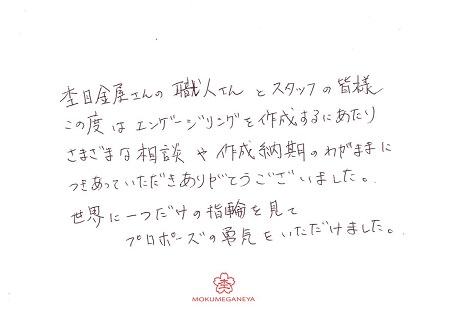 杢目金屋さんの職人さんとスタッフの皆様
この度はエンゲージリングを作成するにあたり
さまざまな相談や作成納期のわがままに
つきあっていただきありがとうございました。
世界に一つだけの指輪を見て
プロポーズの勇気をいただけました。
MOKUMEGANEYA